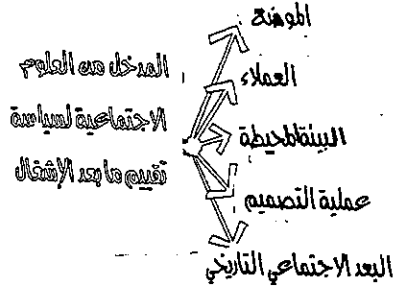 المدخل من العلوم
الاجتماعية لسياسة
تقييم ما بعد الإشغال
العملاء
البيئة المحيطة
عملية التصميم
البعد الاجتماعي التاريخي